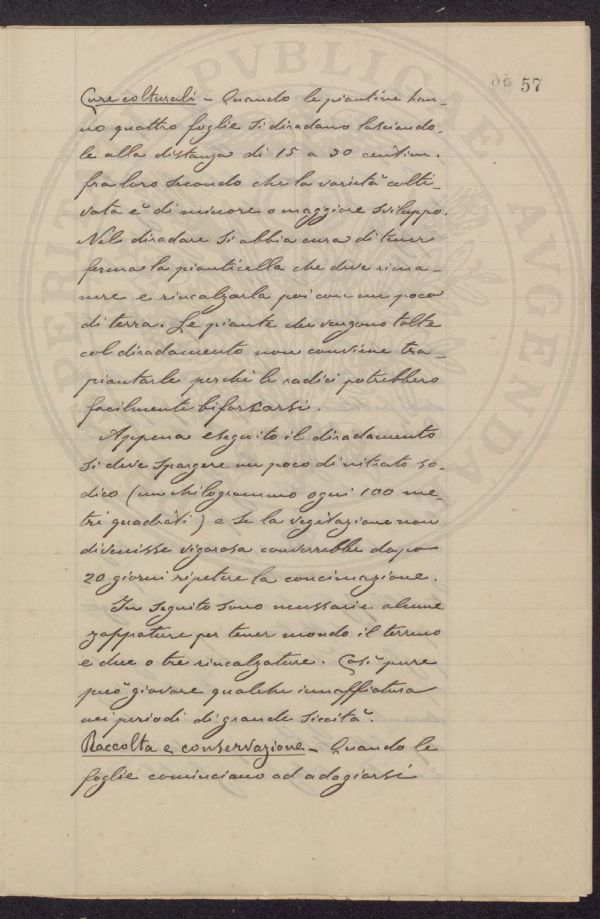 57
Cure colturali - Quando le piantine han-
no quattro foglie si diradano lasciando-
le alla distanza di 15 a 30 centim.
fra loro secondo che la varietà colti-
vata è di minore o maggiore sviluppo.
Nel diradare si abbia cura di tener
ferma la pianticella che deve rima-
nere e rincalzarla poi con un poco
di terra. Le piante che vengono tolte
col diradamento non conviene tra-
piantarle perchè le radici potrebbero
facilmente biforcarsi.
Appena eseguito il diradamento
si deve spargere un poco di nitrato so-
dico (un chilogrammo ogni 100 me-
tri quadrati) e se la vegetazione non
divenisse vigorosa converrebbe dopo
20 giorni ripetere la concimazione.
In seguito sono necessarie alcune
zappature per tener mondo il terreno
e due o tre rincalzature. Così pure
può giovare qualche innaffiatura
nei periodi di grande siccità.
Raccolta e conservazione - Quando le
foglie cominciano ad adagiarsi
PERITA PVBLICAE AVGENDAE